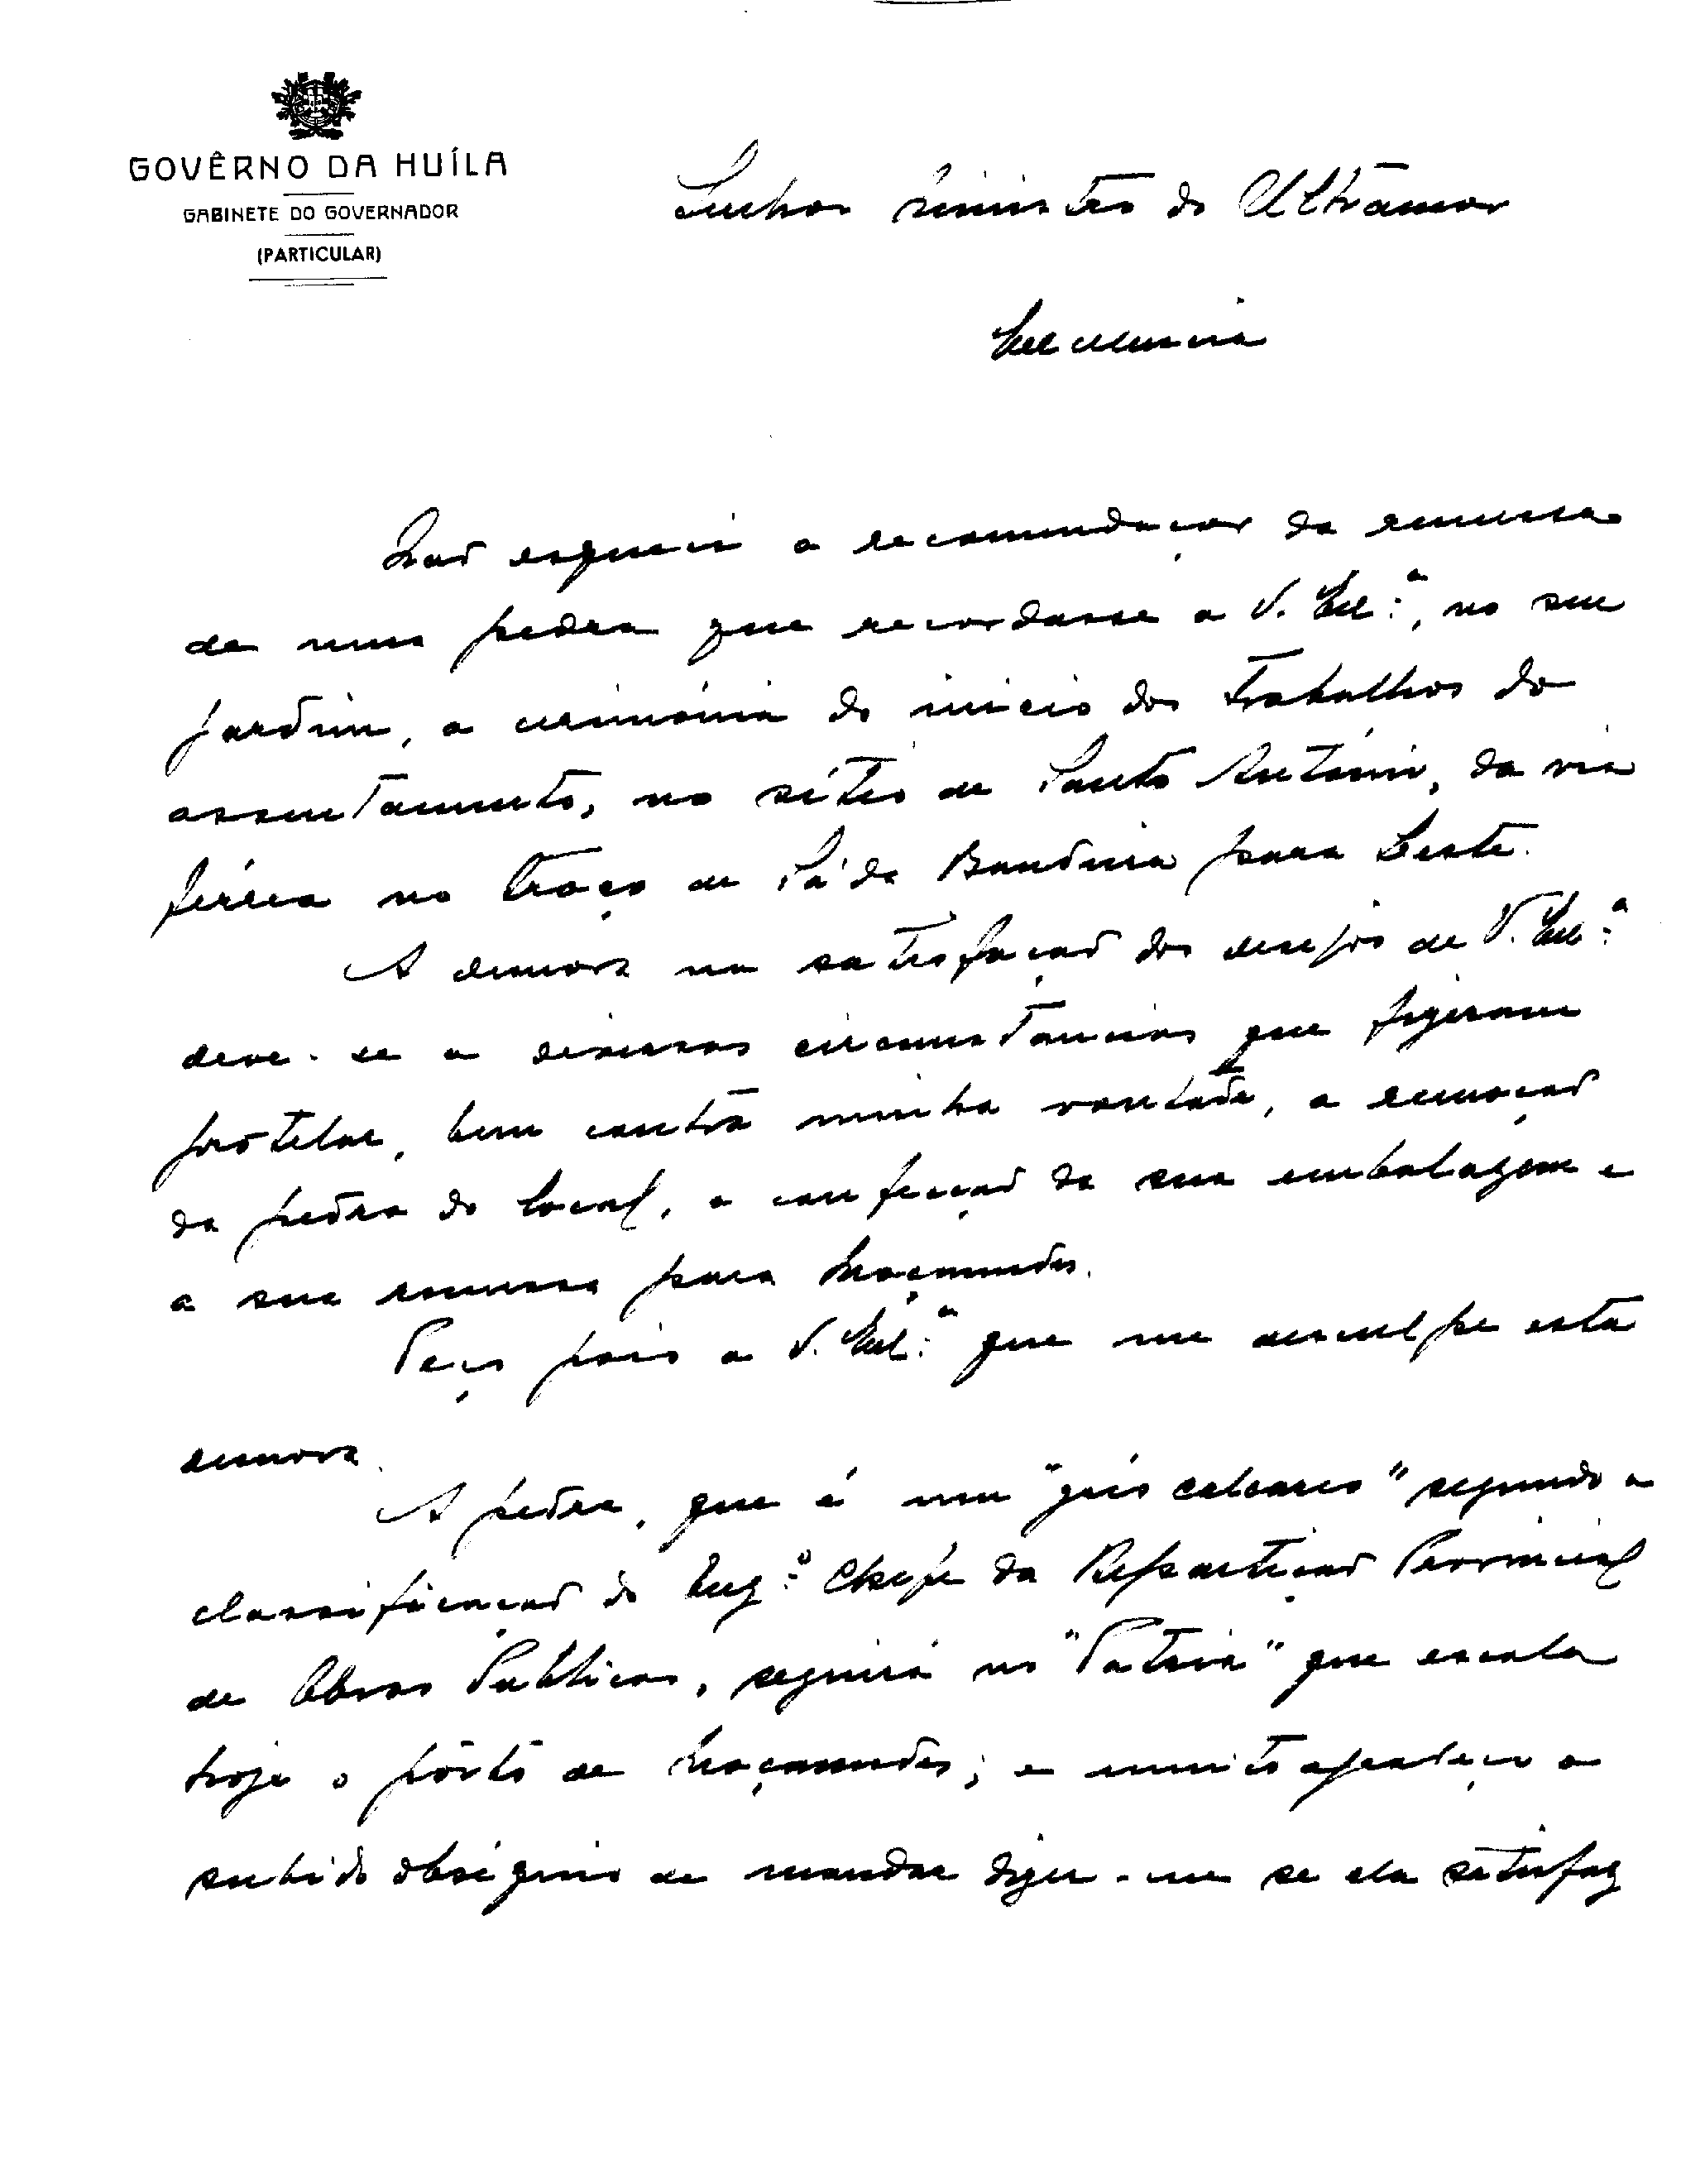 GOVÊRNO DA HUÍLA
GABINETE DO GOVERNADOR
(PARTICULAR)
Senhor Ministro do Ultramar
Excelencia
Não esqueci a recomendação da remessa
de uma pedra que recordasse a V. Exª, no seu
jardim, a cerimónia do inicio dos trabalhos do
assentamento, no sítio de Santo António, da via
férrea no troço de Sá da Bandeira para Leste.
A demora na satisfação dos desejos de V. Exª
deve-se a diversas circunstancias que fizeram
protelar, bem contra minha vontade, a remoção
da pedra do local, a confeção da sua embalagem e
a sua remessa para Moçamedes.
Peço pois a V. Exª que me desculpe esta
demora.
A pedra, que é um "grés calcareo" segundo a
classificação do Engº Chefe da Repartição Provincial
de Obras Publicas, seguirá no "Patria" que escala
hoje o pôrto de Moçamedes; e muito agradeço o
subido obséquio de mandar dizer-me se ela satisfaz